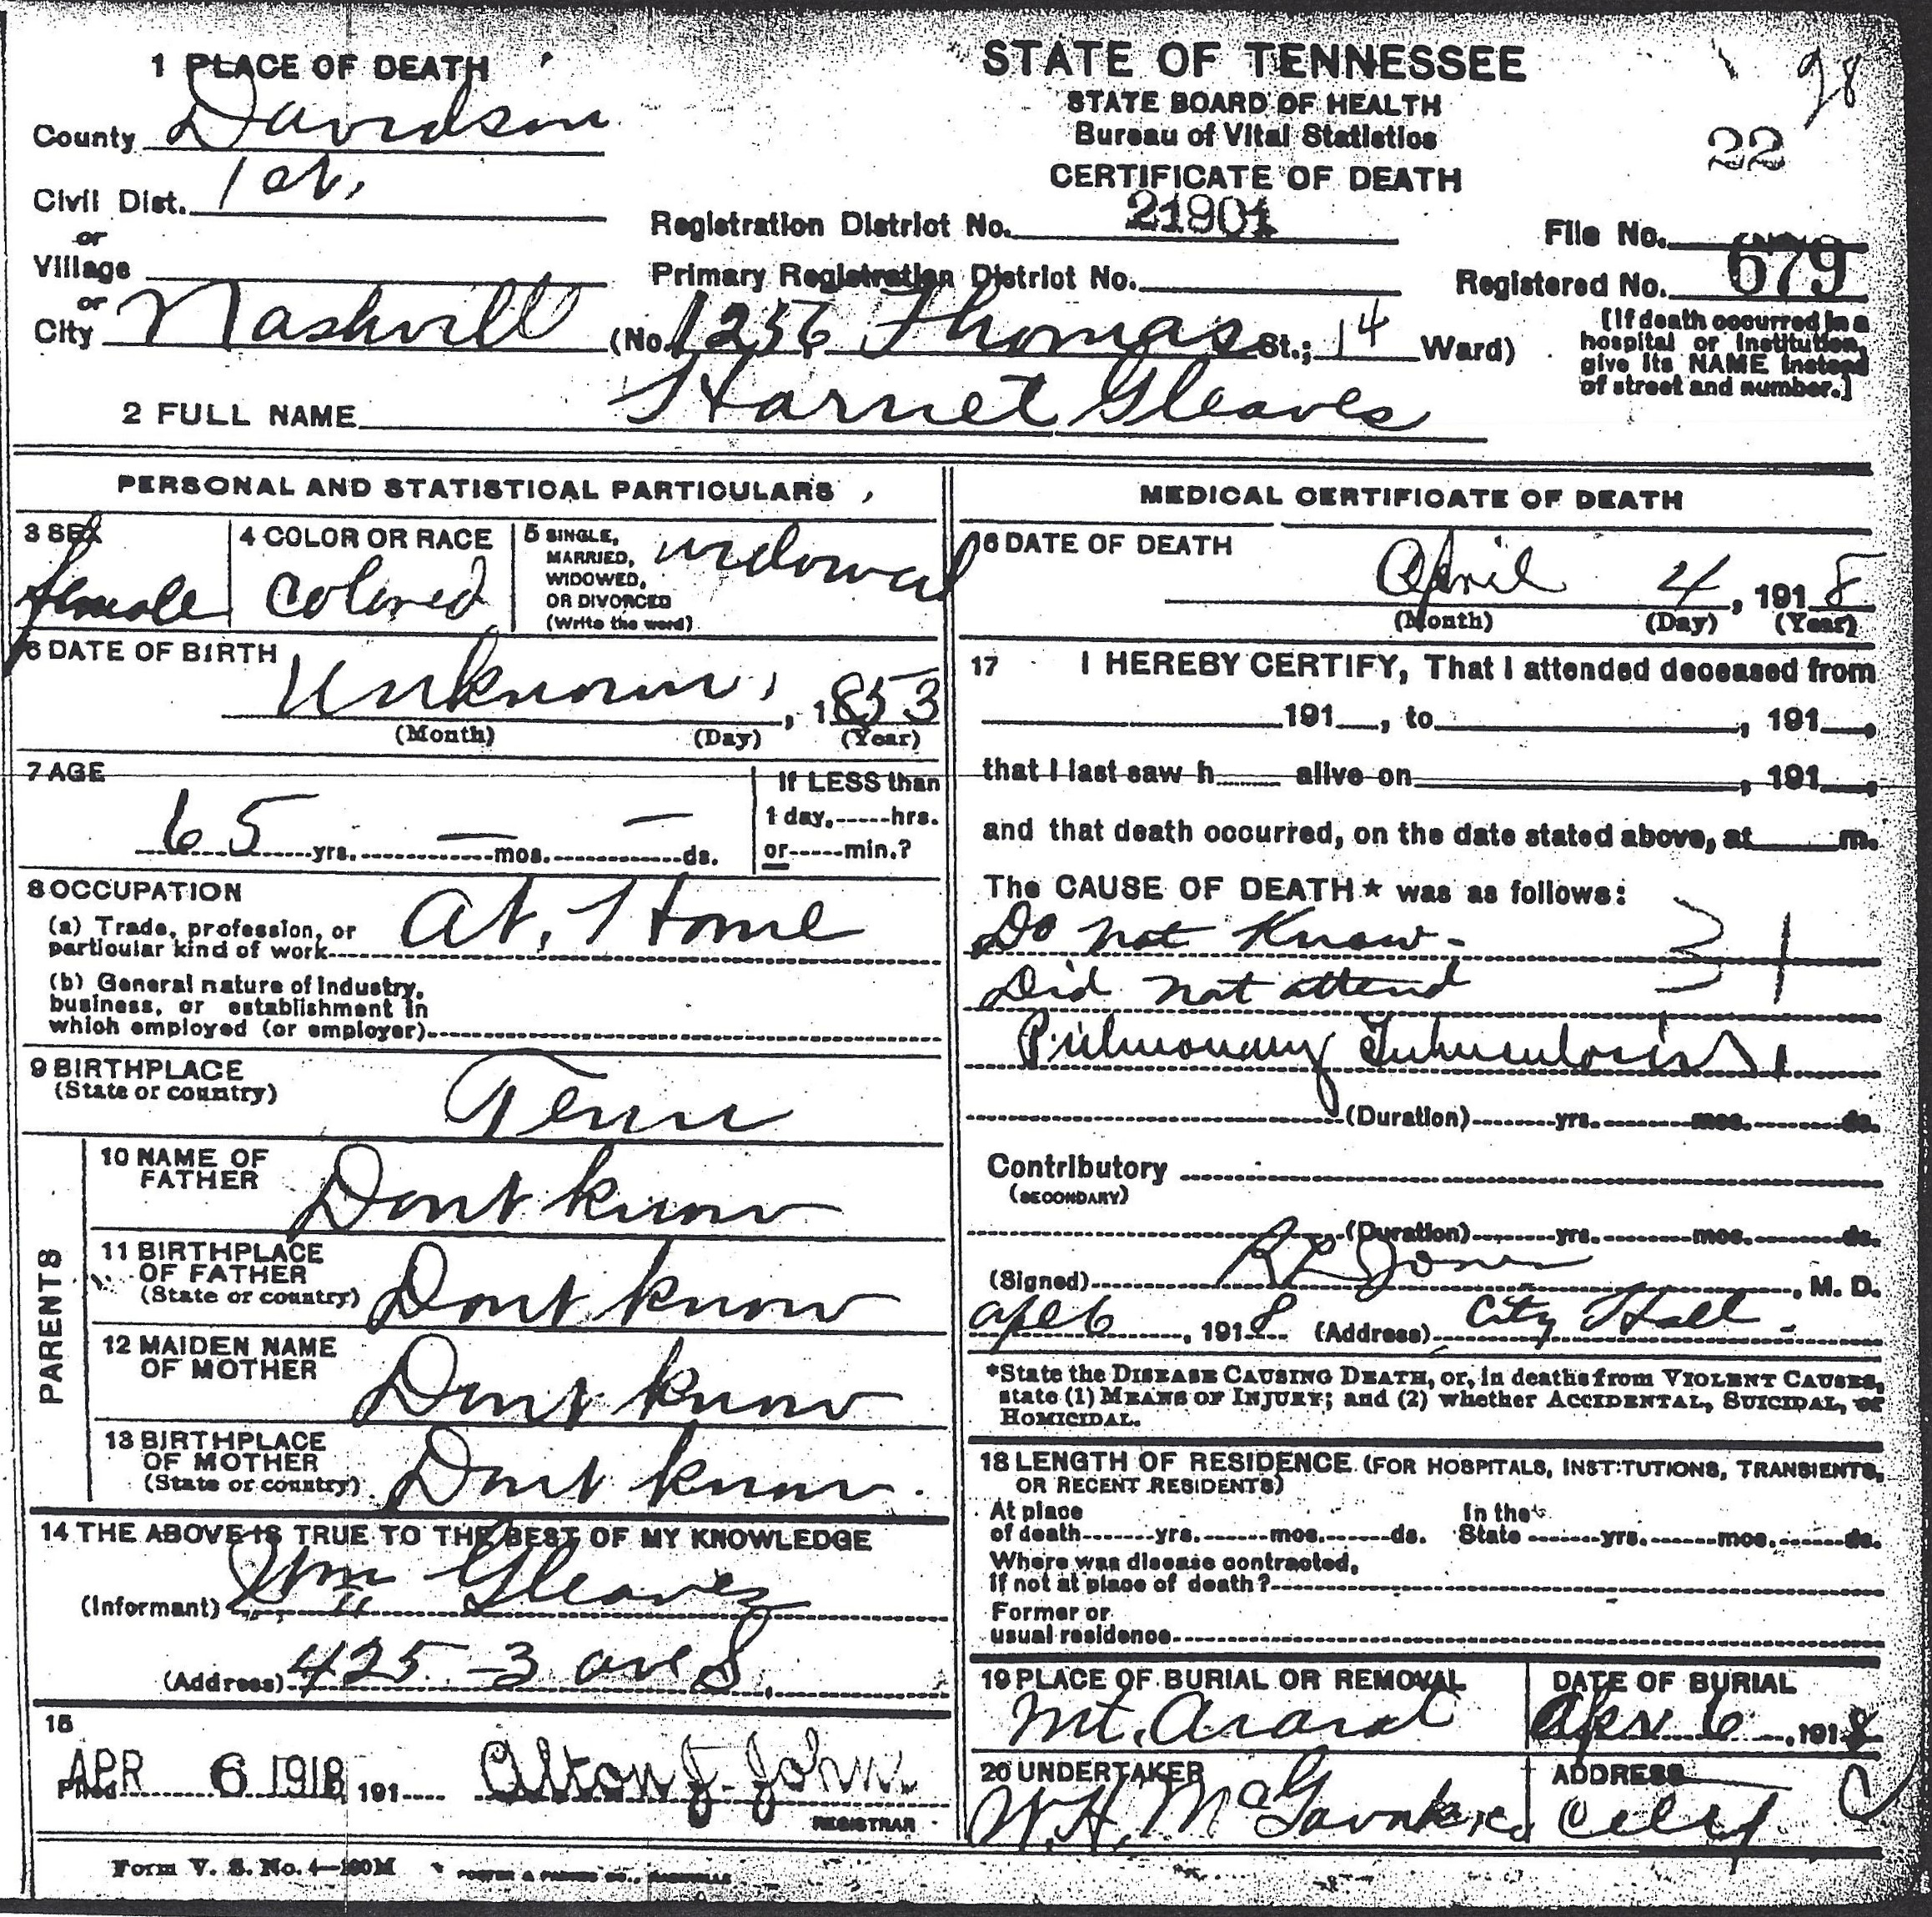 1 PLACE OF DEATH
County Davidson
Civil Dist. 1st.
or
Village
or
City Nashvill (No. 1256 Thomas St.; 14 Ward)
STATE OF TENNESSEE
STATE BOARD OF HEALTH
Bureau of Vital Statistics
CERTIFICATE OF DEATH
98
22
Registration District No. 21901
File No.
Primary Registration District No.
Registered No. 679
[If death occurred in a
hospital or institution,
give its NAME instead
of street and number.]
2 FULL NAME Harriet Gleaves
PERSONAL AND STATISTICAL PARTICULARS
3 SEX
female
4 COLOR OR RACE
Colored
5 SINGLE,
MARRIED,
WIDOWED,
OR DIVORCED
(Write the word)
widowed
6 DATE OF BIRTH
Unknown, 1853
(Month) (Day) (Year)
7 AGE
65 yrs. — mos. — ds.
If LESS than
1 day,-----hrs.
or-----min.?
8 OCCUPATION
(a) Trade, profession, or
particular kind of work At. Home
(b) General nature of Industry,
business, or establishment in
which employed (or employer)
9 BIRTHPLACE
(State or country) Tenn
PARENTS
10 NAME OF
FATHER Dont know
11 BIRTHPLACE
OF FATHER
(State or country) Dont know
12 MAIDEN NAME
OF MOTHER Dont know
13 BIRTHPLACE
OF MOTHER
(State or country) Dont know.
14 THE ABOVE IS TRUE TO THE BEST OF MY KNOWLEDGE
(Informant) Wm Gleaves
(Address) 425-3 ave S.
15
Filed APR 6 1918, 191 Alton J. John
REGISTRAR
MEDICAL CERTIFICATE OF DEATH
16 DATE OF DEATH
April 4, 1918
(Month) (Day) (Year)
17 I HEREBY CERTIFY, That I attended deceased from
191 , to , 191 ,
that I last saw h alive on , 191 ,
and that death occurred, on the date stated above, at m.
The CAUSE OF DEATH* was as follows:
Do not Know- 31
Did not attend
Pulmonary Tuberculosis
(Duration) yrs. mos. ds.
Contributory
(SECONDARY)
(Duration) yrs. mos. ds.
(Signed) RL Jones, M. D.
Apl 6, 1918 (Address) City Hall.
*State the DISEASE CAUSING DEATH, or, in deaths from VIOLENT CAUSES,
state (1) MEANS OF INJURY; and (2) whether ACCIDENTAL, SUICIDAL, or
HOMICIDAL.
18 LENGTH OF RESIDENCE (FOR HOSPITALS, INSTITUTIONS, TRANSIENTS,
OR RECENT RESIDENTS)
At place
of death yrs. mos. ds.
In the
State yrs. mos. ds.
Where was disease contracted,
if not at place of death?
Former or
usual residence
19 PLACE OF BURIAL OR REMOVAL
Mt. Ararat
DATE OF BURIAL
Apr 6, 1918
20 UNDERTAKER
W.H. McGavock
ADDRESS
City
Form V. S. No. 4—100M